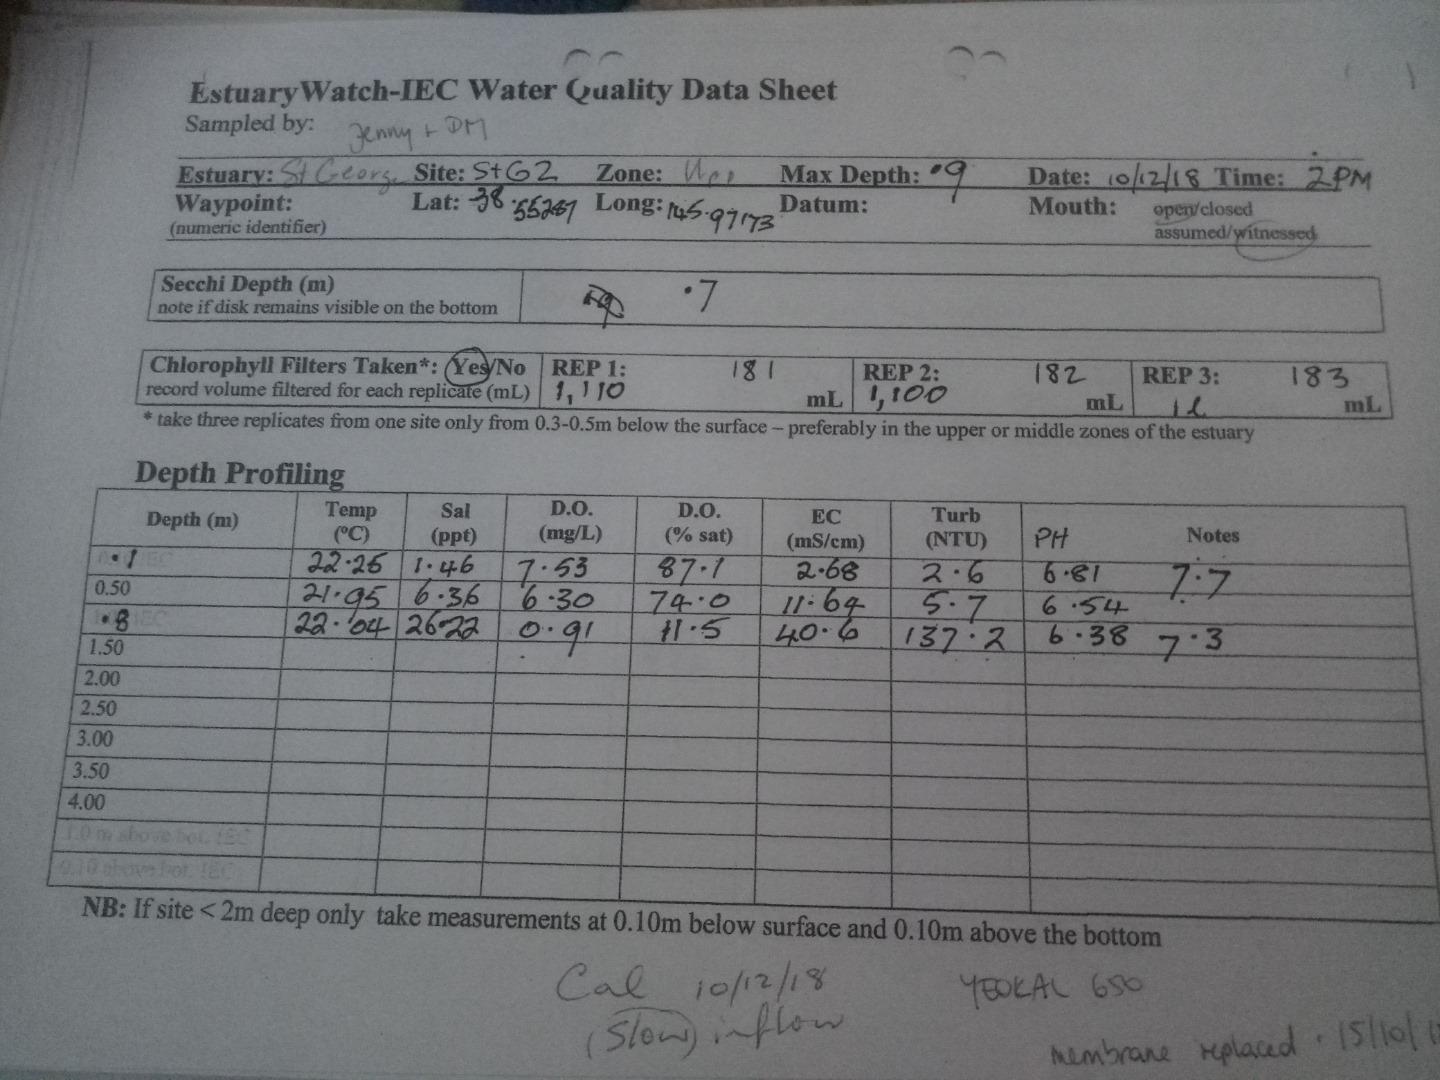 EstuaryWatch-IEC Water Quality Data Sheet
Sampled by: Jenny + DM
Estuary: St George Site: StG2 Zone: Max Depth: .9 Date: 10/12/18 Time: 2PM
Waypoint: Lat: -38.55287 Long: 145.97173 Datum: Mouth: open/closed
(numeric identifier) assumed/witnessed
Secchi Depth (m) .7
note if disk remains visible on the bottom
Chlorophyll Filters Taken*: Yes/No REP 1: 181 REP 2: 182 REP 3: 183
record volume filtered for each replicate (mL) 1,110 mL 1,100 mL 1L mL
* take three replicates from one site only from 0.3-0.5m below the surface – preferably in the upper or middle zones of the estuary
Depth Profiling
Depth (m) Temp (ºC) Sal (ppt) D.O. (mg/L) D.O. (% sat) EC (mS/cm) Turb (NTU) PH Notes
.1 22.25 1.46 7.53 87.1 2.68 2.6 6.81 7.7
0.50 21.95 6.36 6.30 74.0 11.64 5.7 6.54
.8 22.04 26.22 0.91 11.5 40.6 137.2 6.38 7.3
1.50
2.00
2.50
3.00
3.50
4.00
1.0 m above bot. IEC
0.10 above bot. IEC
NB: If site < 2m deep only take measurements at 0.10m below surface and 0.10m above the bottom
Cal 10/12/18 YEOKAL 650
(Slow) inflow
membrane replaced . 15/10/1